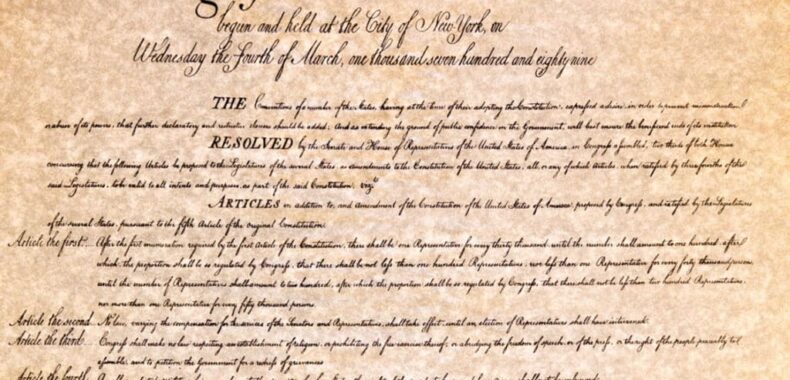 begun and held at the City of New-York, on
Wednesday the Fourth of March, one thousand seven hundred and eighty nine
THE Conventions of a number of the States, having at the time of their adopting the Constitution, expressed a desire, in order to prevent misconstruction
or abuse of its powers, that further declaratory and restrictive clauses should be added: And as extending the ground of public confidence in the Government, will best insure the beneficent ends of its institution
RESOLVED by the Senate and House of Representatives of the United States of America, in Congress assembled, two thirds of both Houses
concurring that the following Articles be proposed to the Legislatures of the several States, as amendments to the Constitution of the United States, all or any of which Articles, when ratified by three fourths of the
said Legislatures, to be valid to all intents and purposes, as part of the said Constitution, vizt.
ARTICLES in addition to, and Amendment of the Constitution of the United States of America, proposed by Congress, and ratified by the Legislatures
of the several States, pursuant to the fifth Article of the original Constitution.
Article the first.... After the first enumeration required by the first Article of the Constitution, there shall be one Representative for every thirty thousand, until the number shall amount to one hundred, after
which, the proportion shall be so regulated by Congress, that there shall be not less than one hundred Representatives, nor less than one Representative for every forty thousand persons,
until the number of Representatives shall amount to two hundred, after which the proportion shall be so regulated by Congress, that there shall not be less than two hundred Representatives,
nor more than one Representative for every fifty thousand persons.
Article the second... No law, varying the compensation for the services of the Senators and Representatives, shall take effect, until an election of Representatives shall have intervened.
Article the third.... Congress shall make no law respecting an establishment of religion, or prohibiting the free exercise thereof; or abridging the freedom of speech, or of the press, or the right of the people peaceably to
assemble, and to petition the Government for a redress of grievances
Article the fourth.